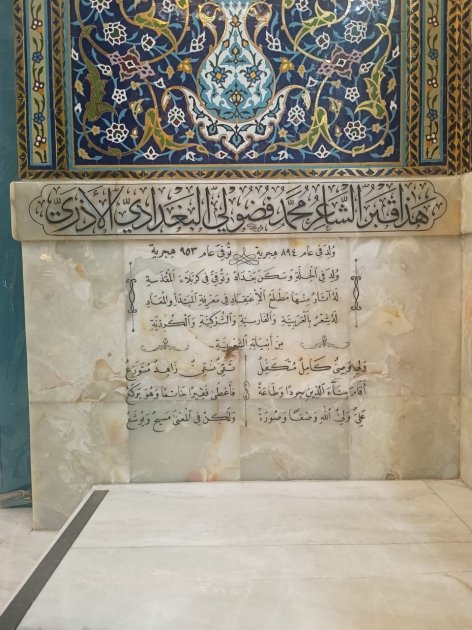 هذا قبر الشاعر محمد فضولي البغدادي الأذري
ولد في عام ٨٩٤ هجرية توفي عام ٩٥٣ هجرية
ولد في الحلة وسكن بغداد وتوفي في كربلاء المقدسة
له آثار منها مطلع الاعتقاد في معرفة المبدأ والمعاد
له شعر بالعربية والفارسية والتركية والكردية
من أبياته الشعرية..
ولي وصي كامل متكفل نقي تقي زاهد متورع
أقام بناء الدين جودا وطاعة فأعطى فقيرا خاتما وهو يركع
علي ولي الله وصفا وصورة ولكن في المعنى مسيح ويوشع